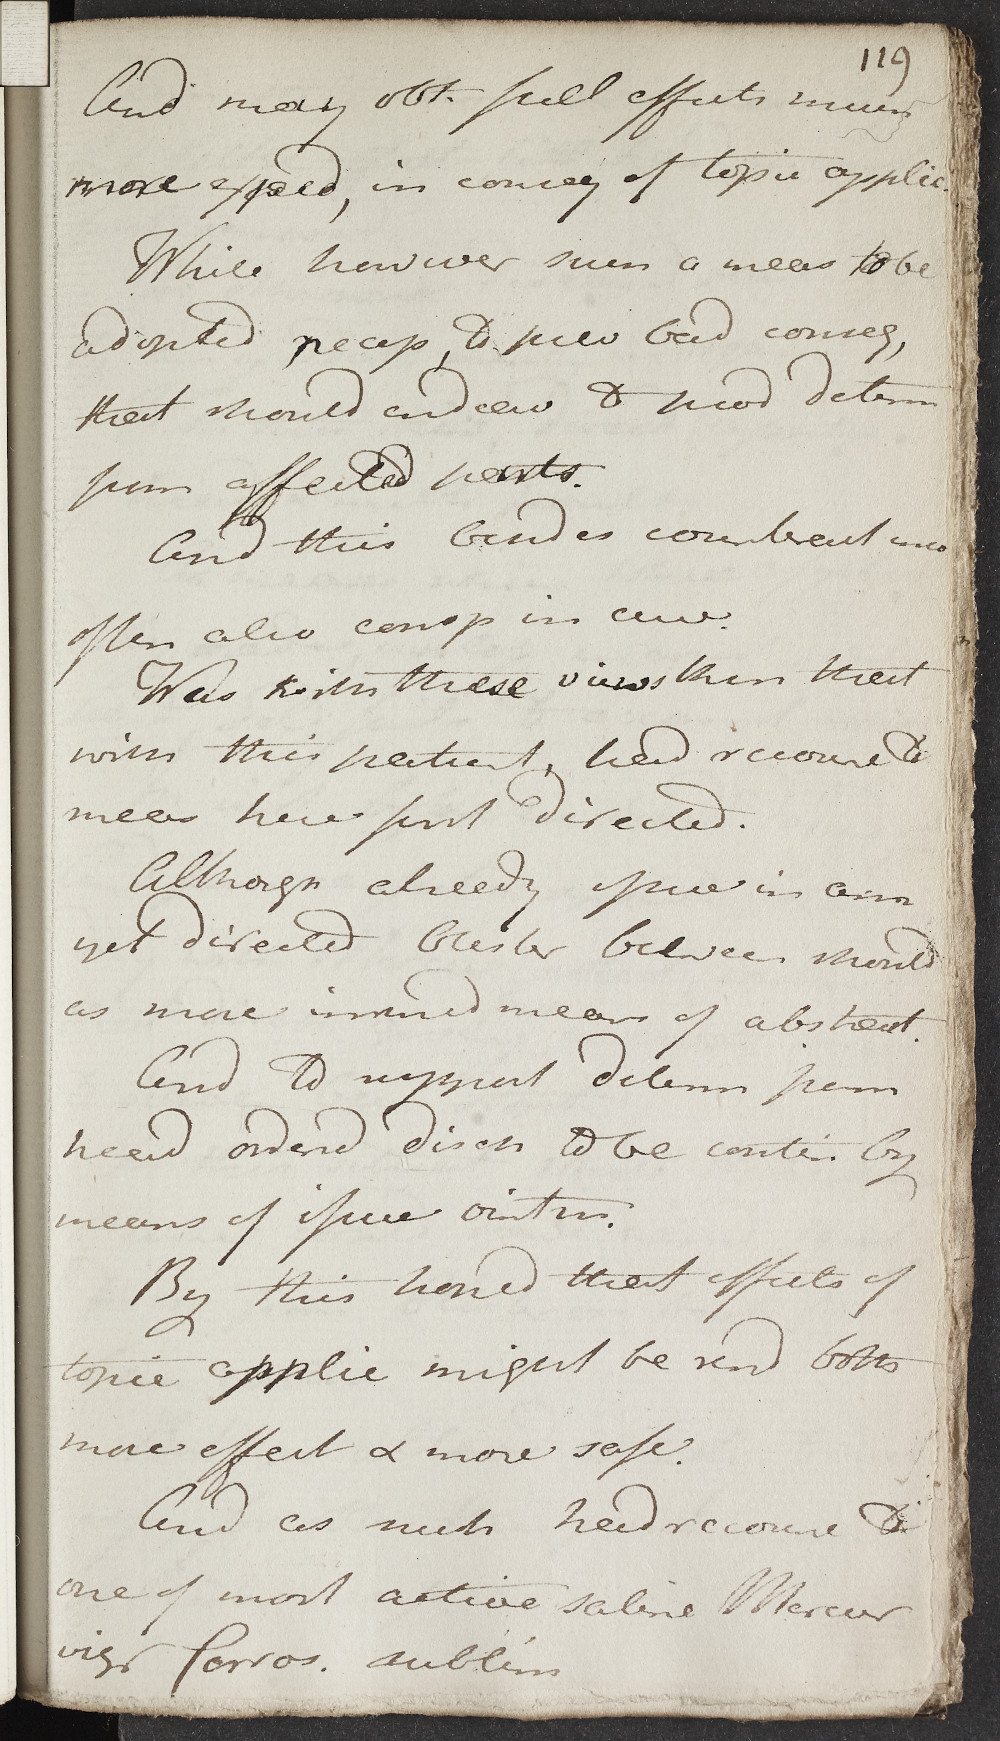 119
And may obt. full effects much
more exped, in conseq of topic applic.
While however such a meas to be
adopted necess, to prev bad conseq,
that should endeav to prod determ
from affected parts.
And this besides counteract
often also consp in cure.
Was with these views then that
with this patient, had recourse to
meas here first directed.
Although already issue in arm
yet directed blister between should
as more immed means of abstract.
And to support determ from
head orderd disch to be contin by
means of issue ointm.
By this hoped that effects of
topic applic might be rend both
more effect & more safe.
And as such had recourse to
one of most active saline Mercur
viz Corros. sublim